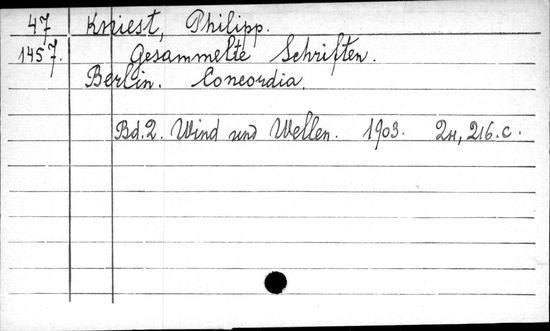 47 Kniest, Philipp.
1457. Gesammelte Schriften.
Berlin. Concordia.
Bd. 2. Wind und Wellen. 1903. 2н, 216.c.